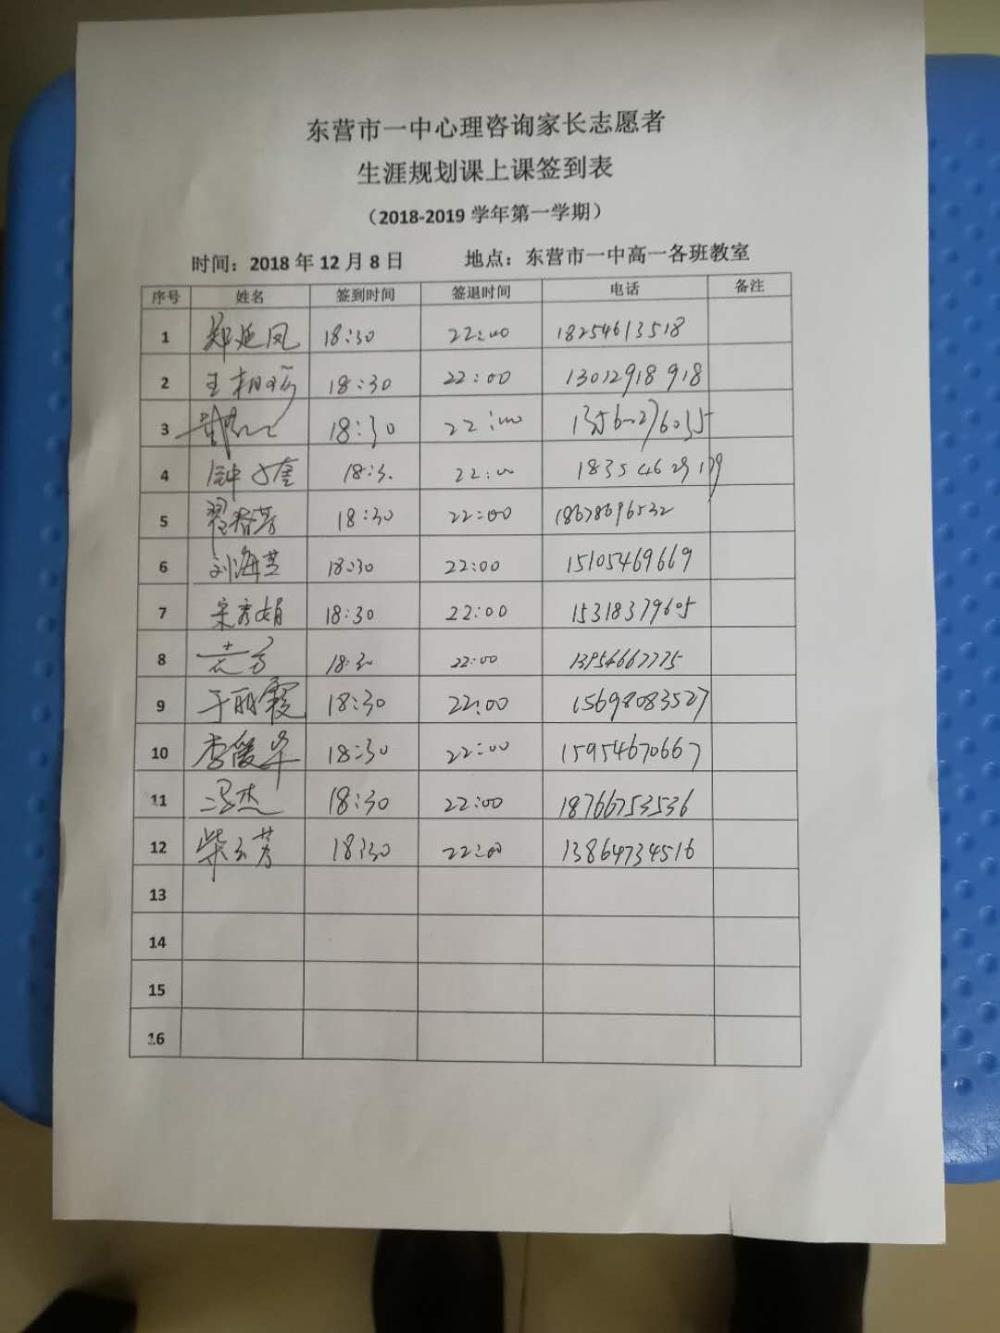 东营市一中心理咨询家长志愿者
生涯规划课上课签到表
（2018-2019 学年第一学期）
时间：2018 年 12 月 8 日 地点：东营市一中高一各班教室
序号 姓名 签到时间 签退时间 电话 备注
1 郑延凤 18:30 22:00 18254613518
2 18:30 22:00 13012918918
3 18:30 22:00
4 18:30 22:00
5 翟春芳 18:30 22:00 18678696532
6 刘海芸 18:30 22:00 15105469669
7 宋秀娟 18:30 22:00 15318379605
8 18:30 22:00
9 于丽霞 18:30 22:00 15698083527
10 18:30 22:00 15954670667
11 冯杰 18:30 22:00 18766753536
12 18:30 22:00 13864734516
13
14
15
16